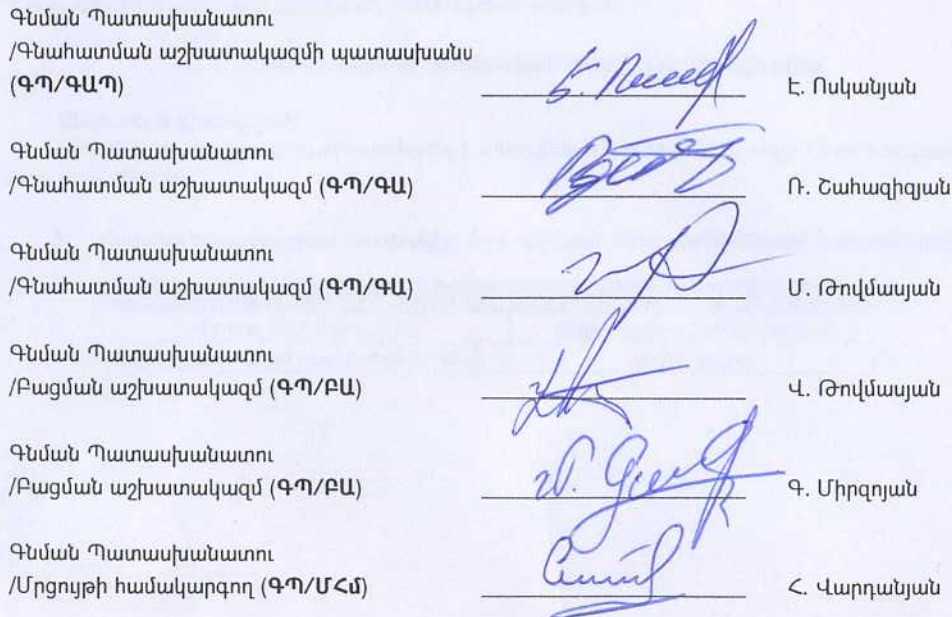 Գնման Պատասխանատու
/Գնահատման աշխատակազմի պատասխանս
(ԳՊ/ԳԱՊ) Է. Ոսկանյան
Գնման Պատասխանատու
/Գնահատման աշխատակազմ (ԳՊ/ԳԱ) Ռ. Շահազիզյան
Գնման Պատասխանատու
/Գնահատման աշխատակազմ (ԳՊ/ԳԱ) Մ. Թովմասյան
Գնման Պատասխանատու
/Բացման աշխատակազմ (ԳՊ/ԲԱ) Վ. Թովմասյան
Գնման Պատասխանատու
/Բացման աշխատակազմ (ԳՊ/ԲԱ) Գ. Միրզոյան
Գնման Պատասխանատու
/Մրցույթի համակարգող (ԳՊ/ՄՀմ) Հ. Վարդանյան